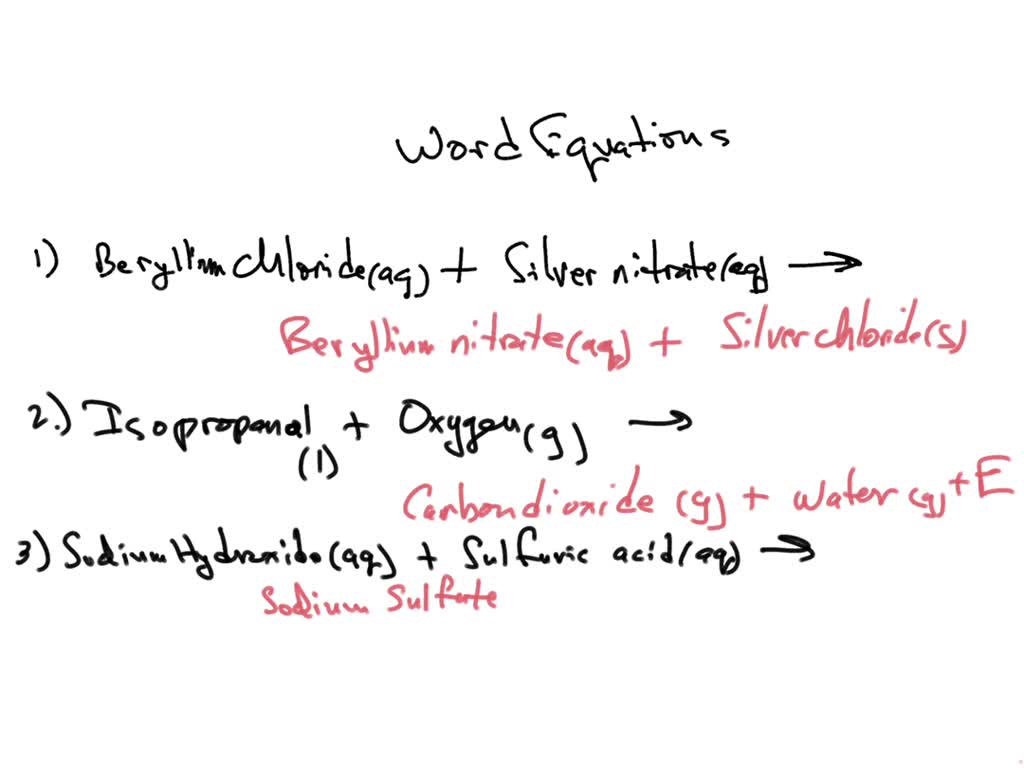 Word Equations
1) Beryllium chloride(aq) + Silver nitrate(aq) →
Beryllium nitrate(aq) + Silver chloride(s)
2.) Isopropanal + Oxygen(g) →
(l)
Carbondioxide (g) + water (g) + E
3) Sodium Hydroxide(aq) + Sulfuric acid(aq) →
Sodium Sulfate